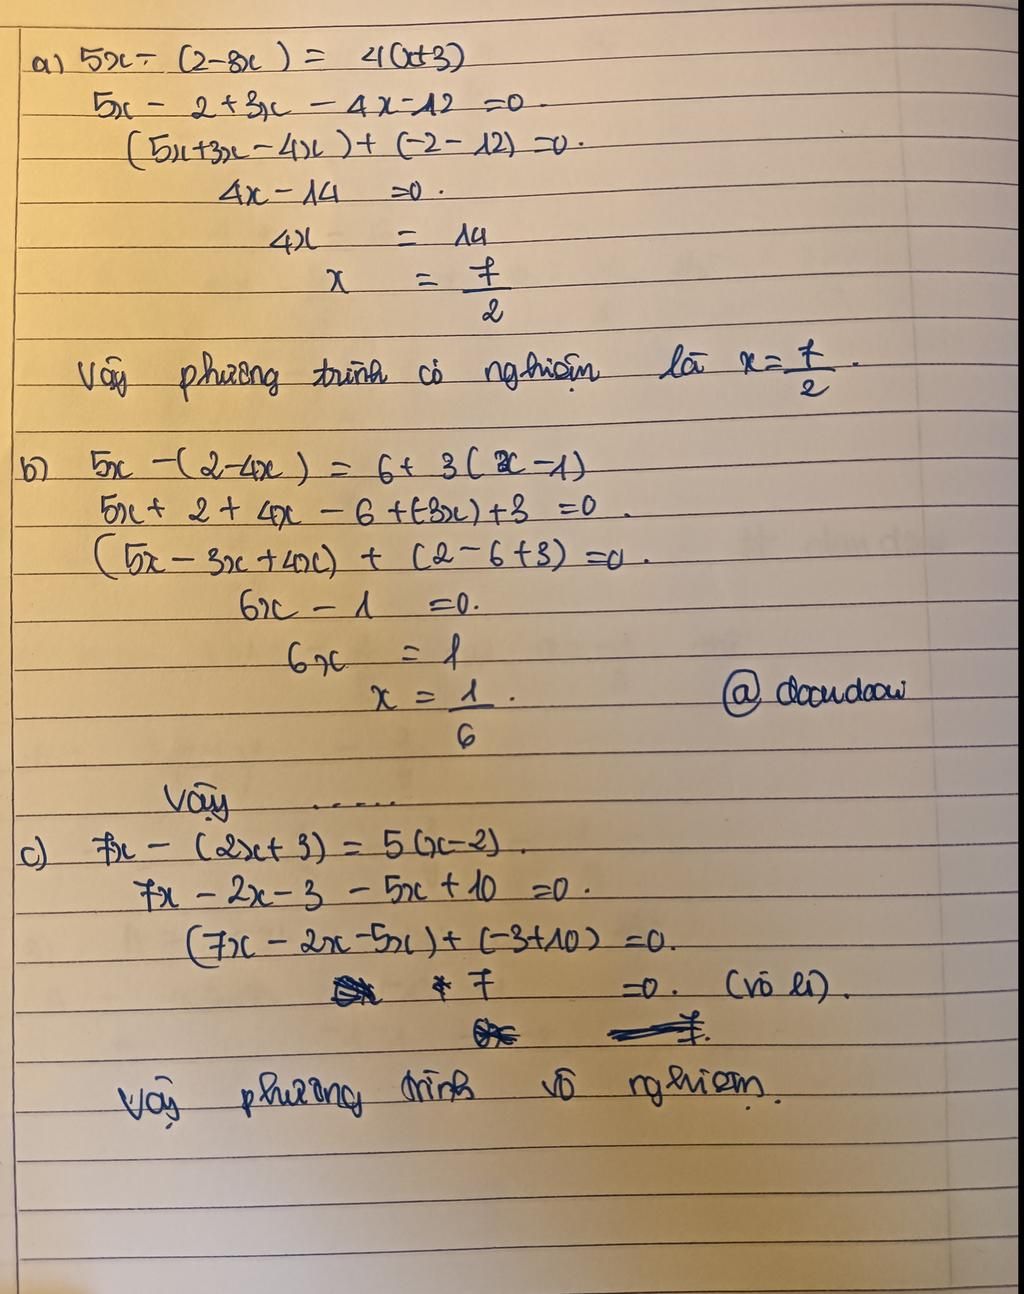 a) 5x - (2-3x) = 4(x+3)
5x - 2 + 3x - 4x - 12 = 0.
(5x+3x-4x) + (-2-12) = 0.
4x - 14 = 0.
4x = 14
x = 7/2
Vậy phương trình có nghiệm là x = 7/2.
b) 5x - (2-4x) = 6 + 3(x-1)
5x + 2 + 4x - 6 + (-3x) + 3 = 0.
(5x - 3x + 4x) + (2 - 6 + 3) = 0.
6x - 1 = 0.
6x = 1
x = 1/6.
Vậy ......
c) 7x - (2x+3) = 5(x-2).
7x - 2x - 3 - 5x + 10 = 0.
(7x - 2x - 5x) + (-3+10) = 0.
7 = 0. (vô lí).
Vậy phương trình vô nghiệm.